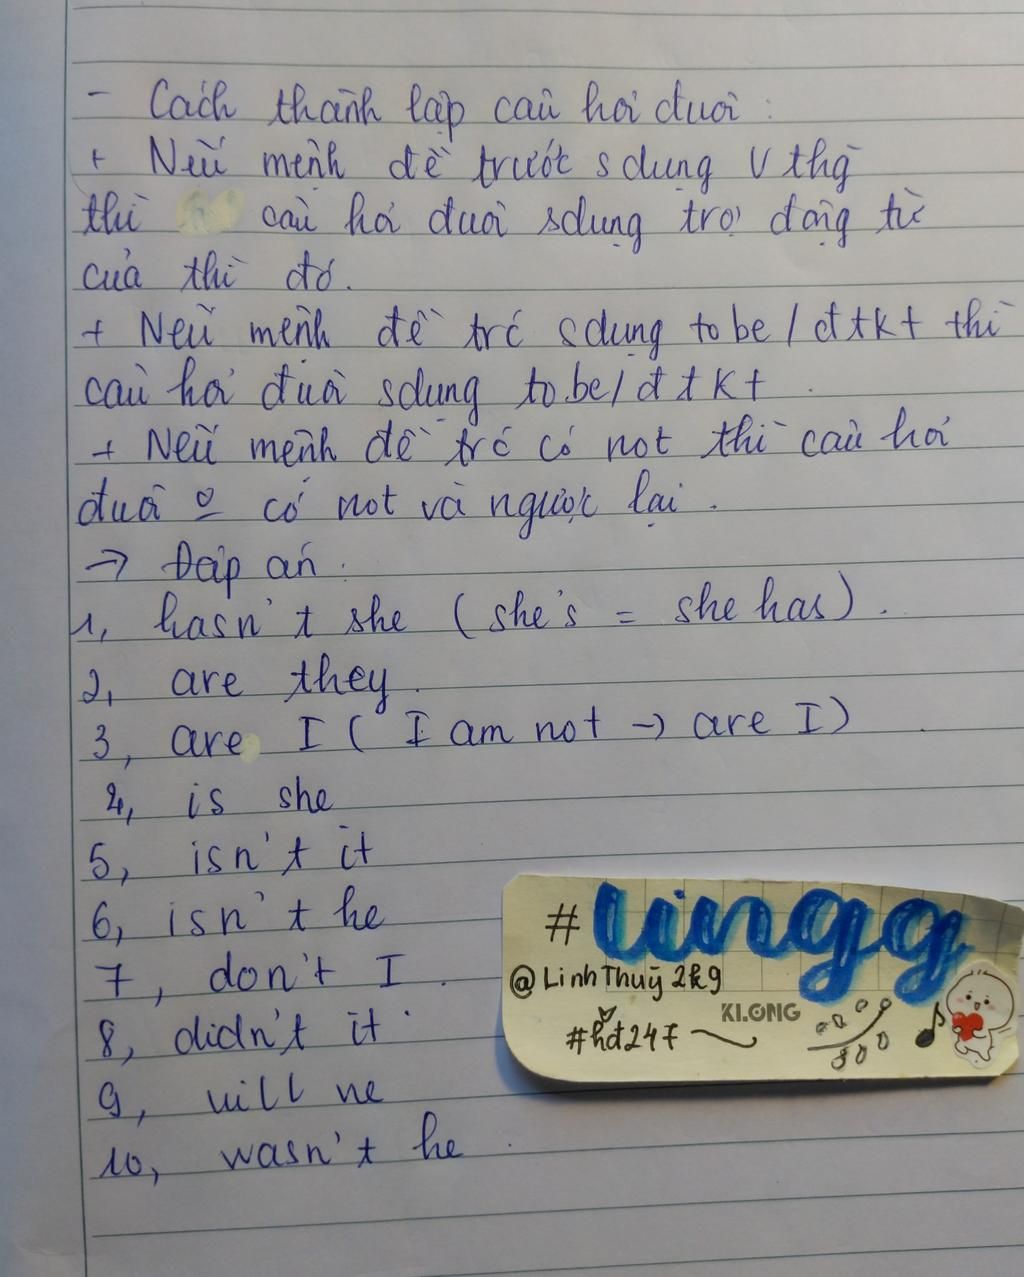 - Cách thành lập câu hỏi đuôi :
+ Nếu mệnh đề trước sdụng V thg
thì câu hỏi đuôi sdụng trợ động từ
của thì đó.
+ Nếu mệnh đề trc sdụng to be / đtkt thì
câu hỏi đuôi sdụng to be / đtkt .
+ Nếu mệnh đề trc có not thì câu hỏi
đuôi o có not và ngược lại .
→ Đáp án :
1, hasn't she ( she's = she has ) .
2, are they .
3, are I ( I am not → are I )
4, is she
5, isn't it
6, isn't he
7, don't I .
8, didn't it .
9, will he
10, wasn't he .
#lingg
@LinhThuỳ2k9
KLONG
#hđ247